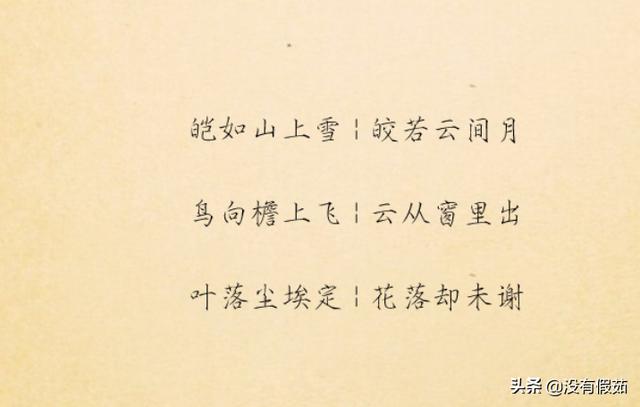 皑如山上雪¦皎若云间月
鸟向檐上飞¦云从窗里出
叶落尘埃定¦花落却未谢
头条 @没有假茹